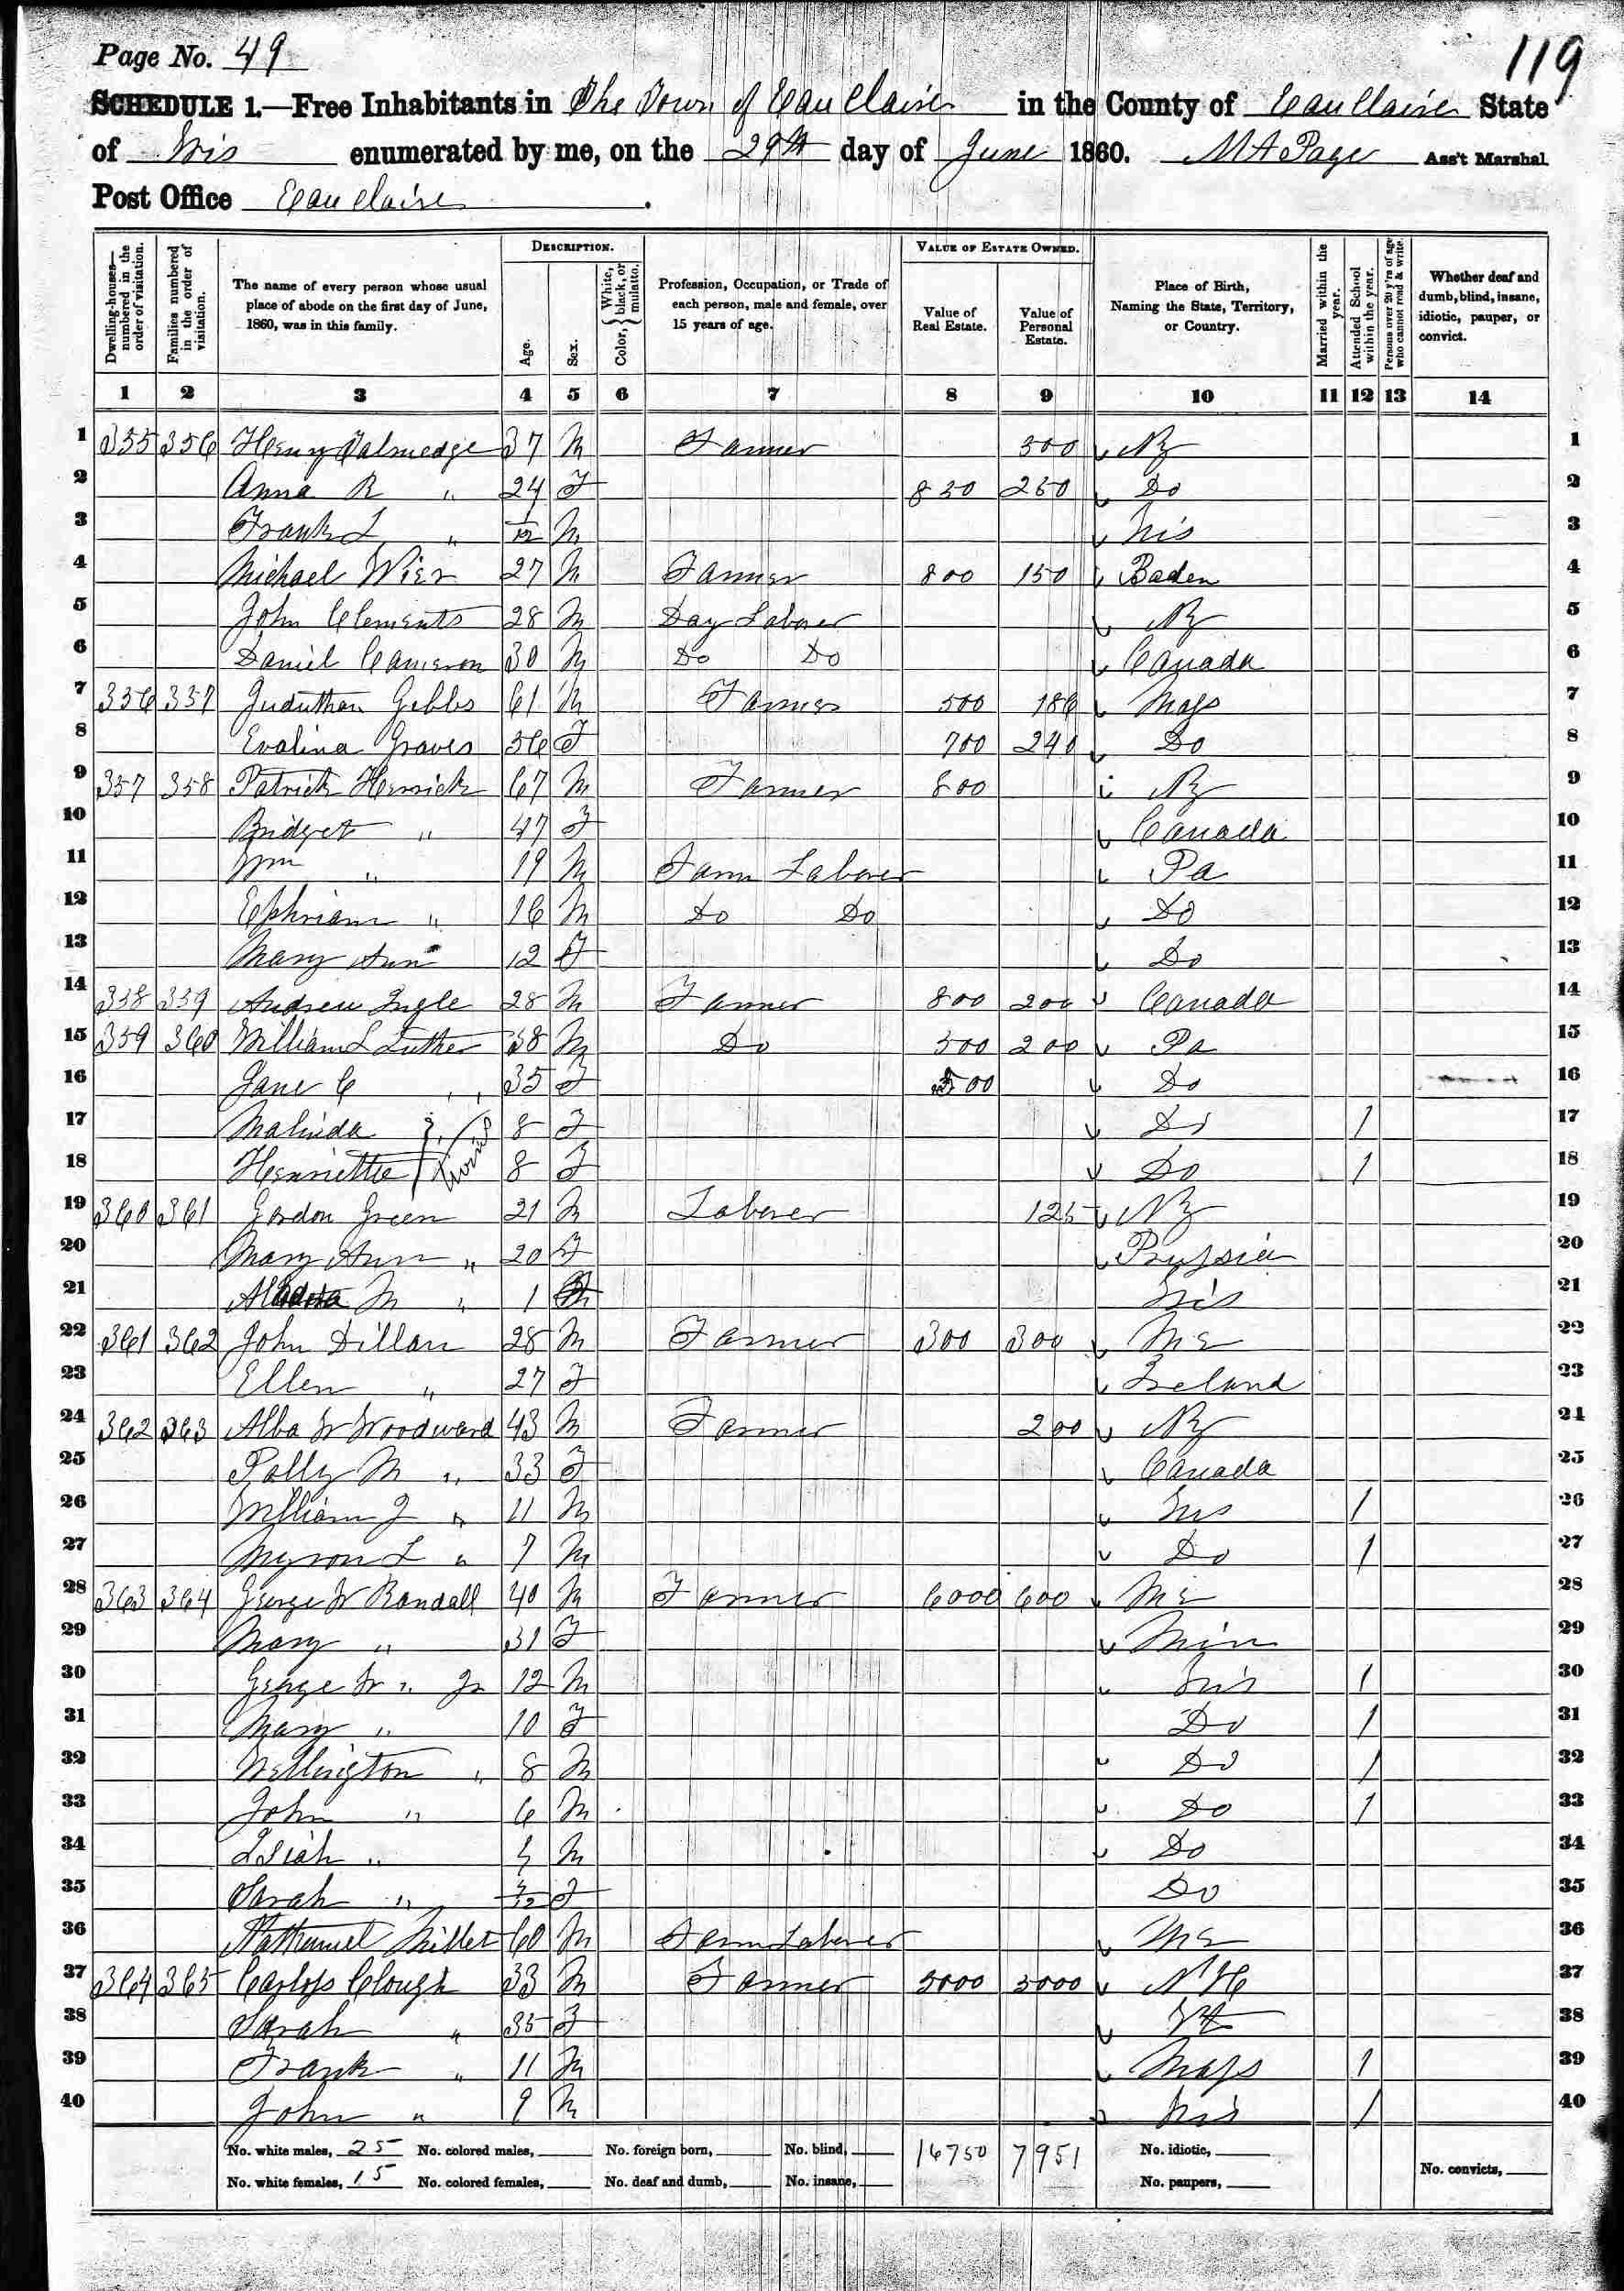 Page No. 49
119
SCHEDULE 1.—Free Inhabitants in The Town of Eau Claire in the County of Eau Claire State
of Wis enumerated by me, on the 29th day of June 1860. M A Page Ass't Marshal.
Post Office Eau Claire.
Dwelling-houses—numbered in the order of visitation. Families numbered in the order of visitation. The name of every person whose usual place of abode on the first day of June, 1860, was in this family. DESCRIPTION. Age. Sex. Color, { White, black, or mulatto. Profession, Occupation, or Trade of each person, male and female, over 15 years of age. VALUE OF ESTATE OWNED. Value of Real Estate. Value of Personal Estate. Place of Birth, Naming the State, Territory, or Country. Married within the year. Attended School within the year. Persons over 20 y'rs of age who cannot read & write. Whether deaf and dumb, blind, insane, idiotic, pauper, or convict.
1 2 3 4 5 6 7 8 9 10 11 12 13 14
1 355 356 Henry Palmedge 37 M Farmer 500 NY 1
2 Anna R " 24 F 850 250 Do 2
3 Frank L " 1/12 M Wis 3
4 Michael Wier 27 M Farmer 800 150 Baden 4
5 John Clements 28 M Day Laborer NY 5
6 Daniel Cameron 30 M Do Do Canada 6
7 356 357 Juduthan Gibbs 61 M Farmer 500 186 Mass 7
8 Evalina Graves 56 F 700 240 Do 8
9 357 358 Patrick Herrick 67 M Farmer 800 NY 9
10 Bridget " 47 F Canada 10
11 Wm " 19 M Farm Laborer Pa 11
12 Ephriam " 16 M Do Do Do 12
13 Mary Ann " 12 F Do 13
14 358 359 Andrew Ingle 28 M Farmer 800 200 Canada 14
15 359 360 William L Luther 38 M Do 500 200 Pa 15
16 Jane C " 35 F 500 Do 16
17 Malinda } Twins 8 F Do / 17
18 Henriettie 8 F Do / 18
19 360 361 Gordon Green 21 M Laborer 125 NY 19
20 Mary Ann " 20 F Prussia 20
21 M " 1 Wis 21
22 361 362 John Dillon 28 M Farmer 300 300 Me 22
23 Ellen " 27 F Ireland 23
24 362 363 Alba W Woodward 43 M Farmer 200 NY 24
25 Polly M " 33 F Canada 25
26 William J " 11 M Wis / 26
27 Myron L " 7 M Do / 27
28 363 364 George W Randall 40 M Farmer 6000 600 Me 28
29 Mary " 31 F Min 29
30 George W " Jr 12 M Wis / 30
31 Mary " 10 F Do / 31
32 Wellington " 8 M Do / 32
33 John " 6 M Do / 33
34 Isiah " M Do 34
35 Sarah " F Do 35
36 Nathaniel Millet 60 M Farm Laborer Me 36
37 364 365 Carlos Clough 33 M Farmer 5000 5000 N H 37
38 Sarah " 35 F Vt 38
39 Frank " 11 M Mass / 39
40 John " 9 M Wis / 40
No. white males, 25 No. colored males, No. foreign born, No. blind, 16750 7951 No. idiotic,
No. white females, 15 No. colored females, No. deaf and dumb, No. insane, No. paupers, No. convicts,